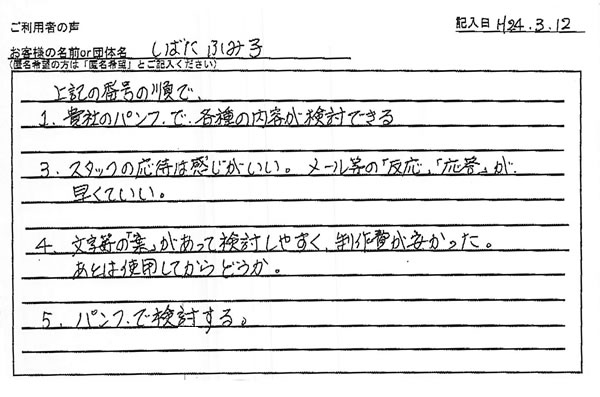 ご利用者の声
記入日 H24.3.12
お客様の名前or団体名 しばた ふみ子
(匿名希望の方は「匿名希望」とご記入ください)
上記の番号の順で、
1. 貴社のパンフ.で.各種の内容が検討できる
3. スタッフの応待は感じがいい。メール等の「反応」,「応答」が
早くていい。
4. 文字等の「案」があって検討しやすく、制作費が安かった。
あとは使用してからどうか。
5. パンフ.で検討する。